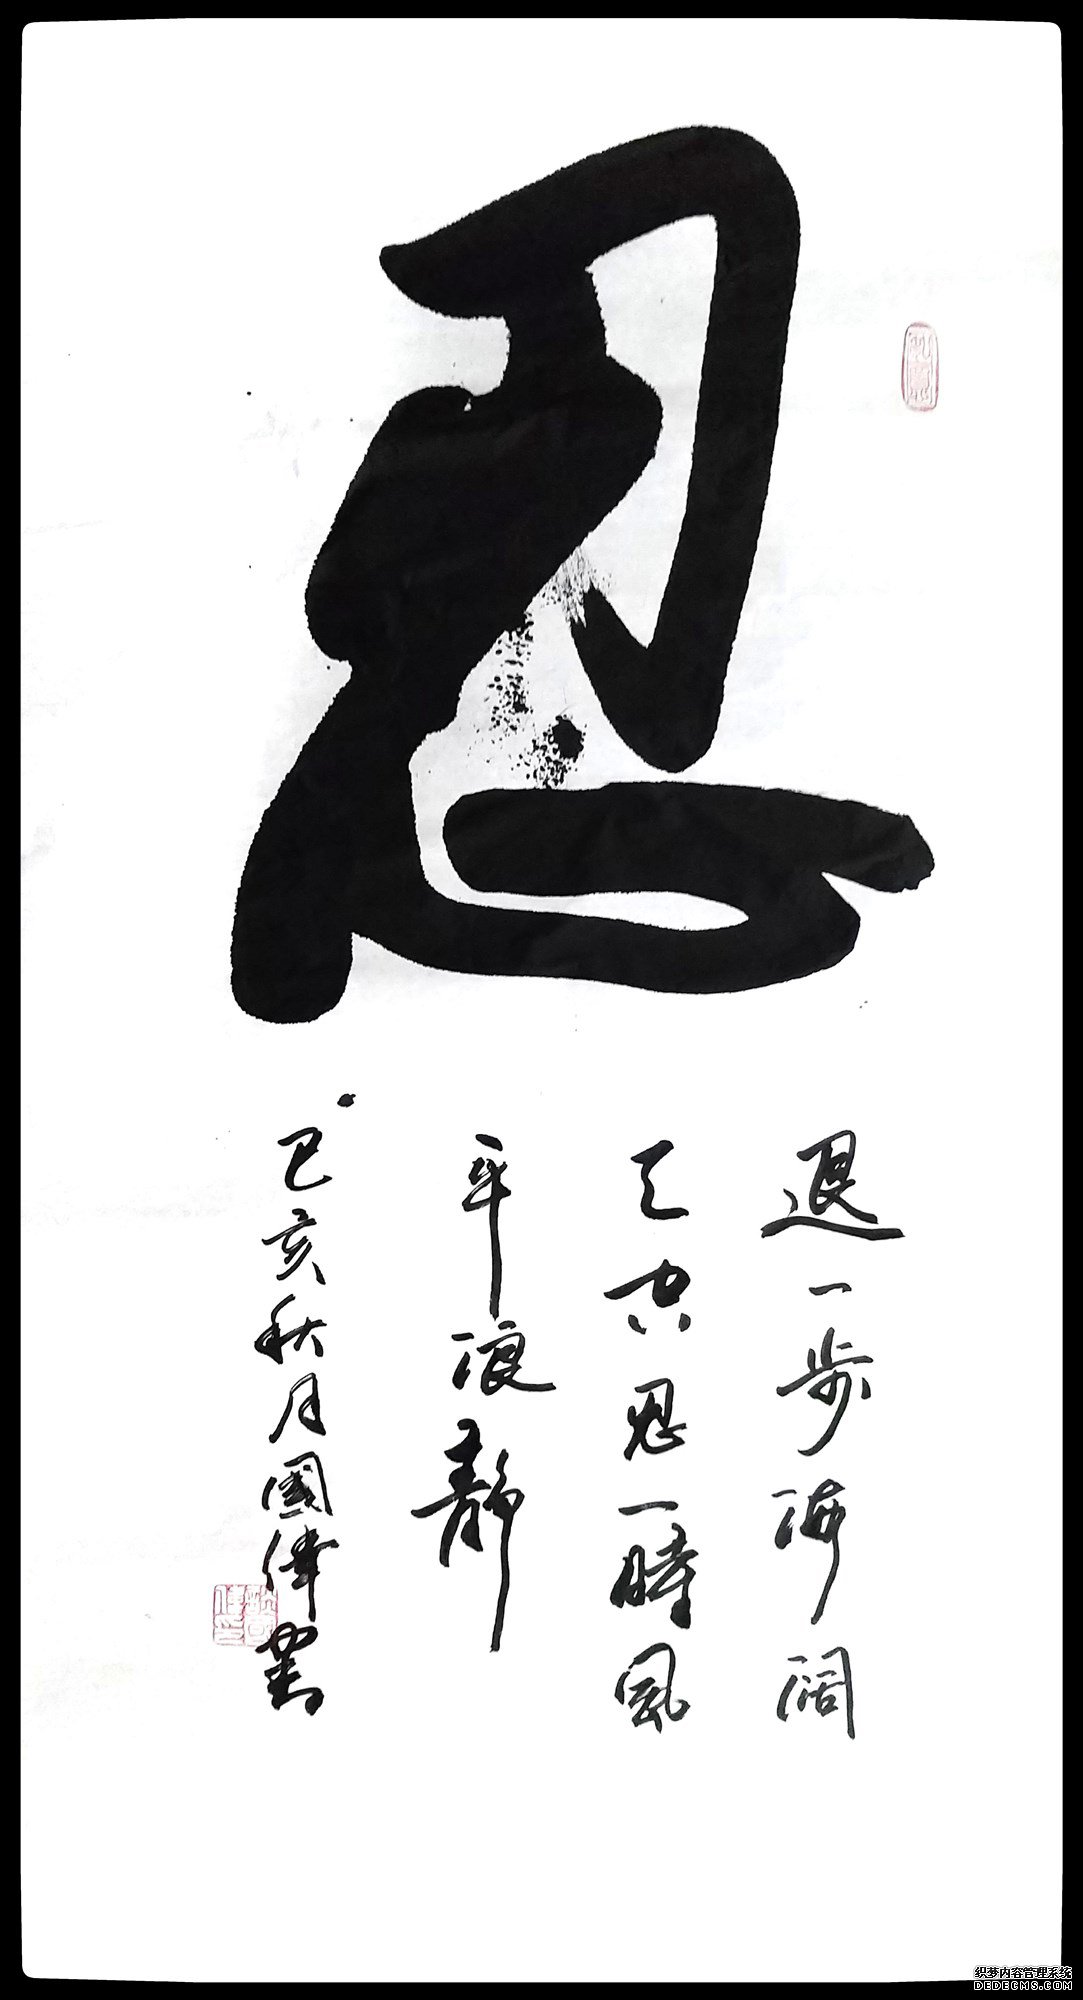 忍
退一步海阔
天空忍一時风
平浪静
己亥秋月國偉書
织梦内容管理系统
DEDECMS.COM